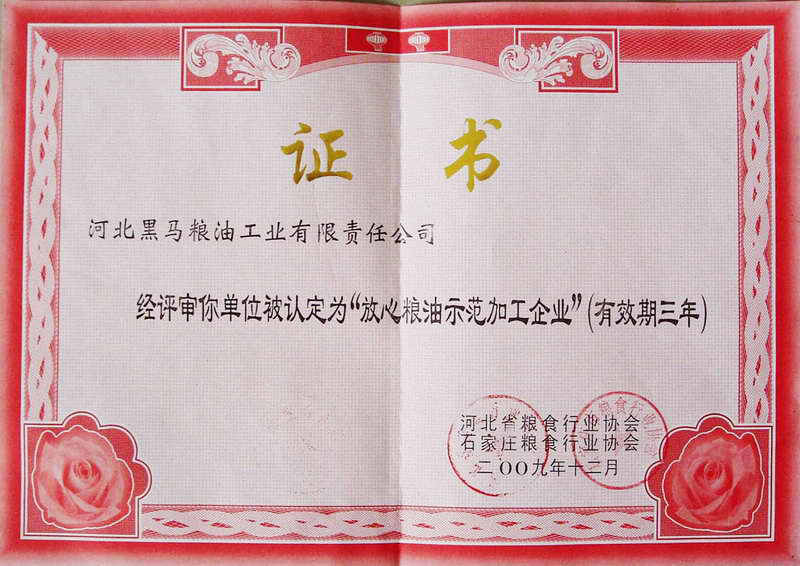 证 书
河北黑马粮油工业有限责任公司
经评审你单位被认定为“放心粮油示范加工企业”(有效期三年)
河北省粮食行业协会
石家庄粮食行业协会
二OO九年十二月
粮食行业协